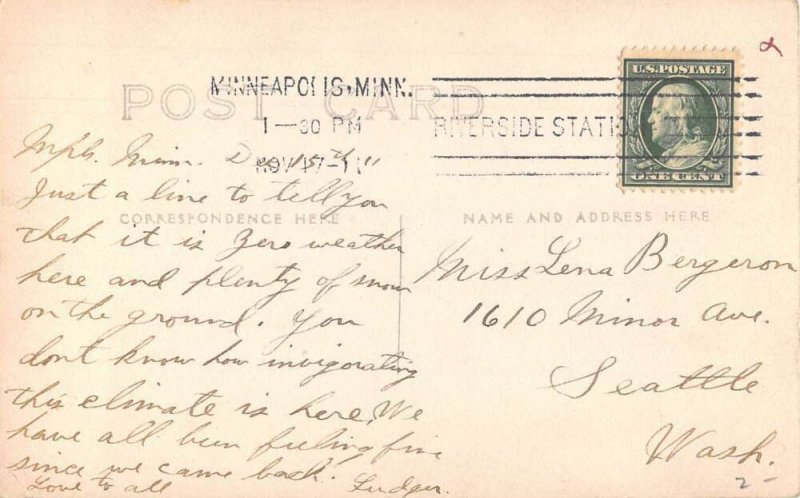 POST CARD
MINNEAPOLIS, MINN.
1-30 PM
NOV 17-11
RIVERSIDE STATION
U.S. POSTAGE
ONE CENT
CORRESPONDENCE HERE
NAME AND ADDRESS HERE
Mpls. Minn. 11
Just a line to tell you
that it is Zero weather
here and plenty of snow
on the ground. You
dont know how invigorating
this climate is here, We
have all been feeling fine
since we came back.
Love to all Ludger.
Miss Lena Bergeron
1610 Minor Ave.
Seattle
Wash.
2-